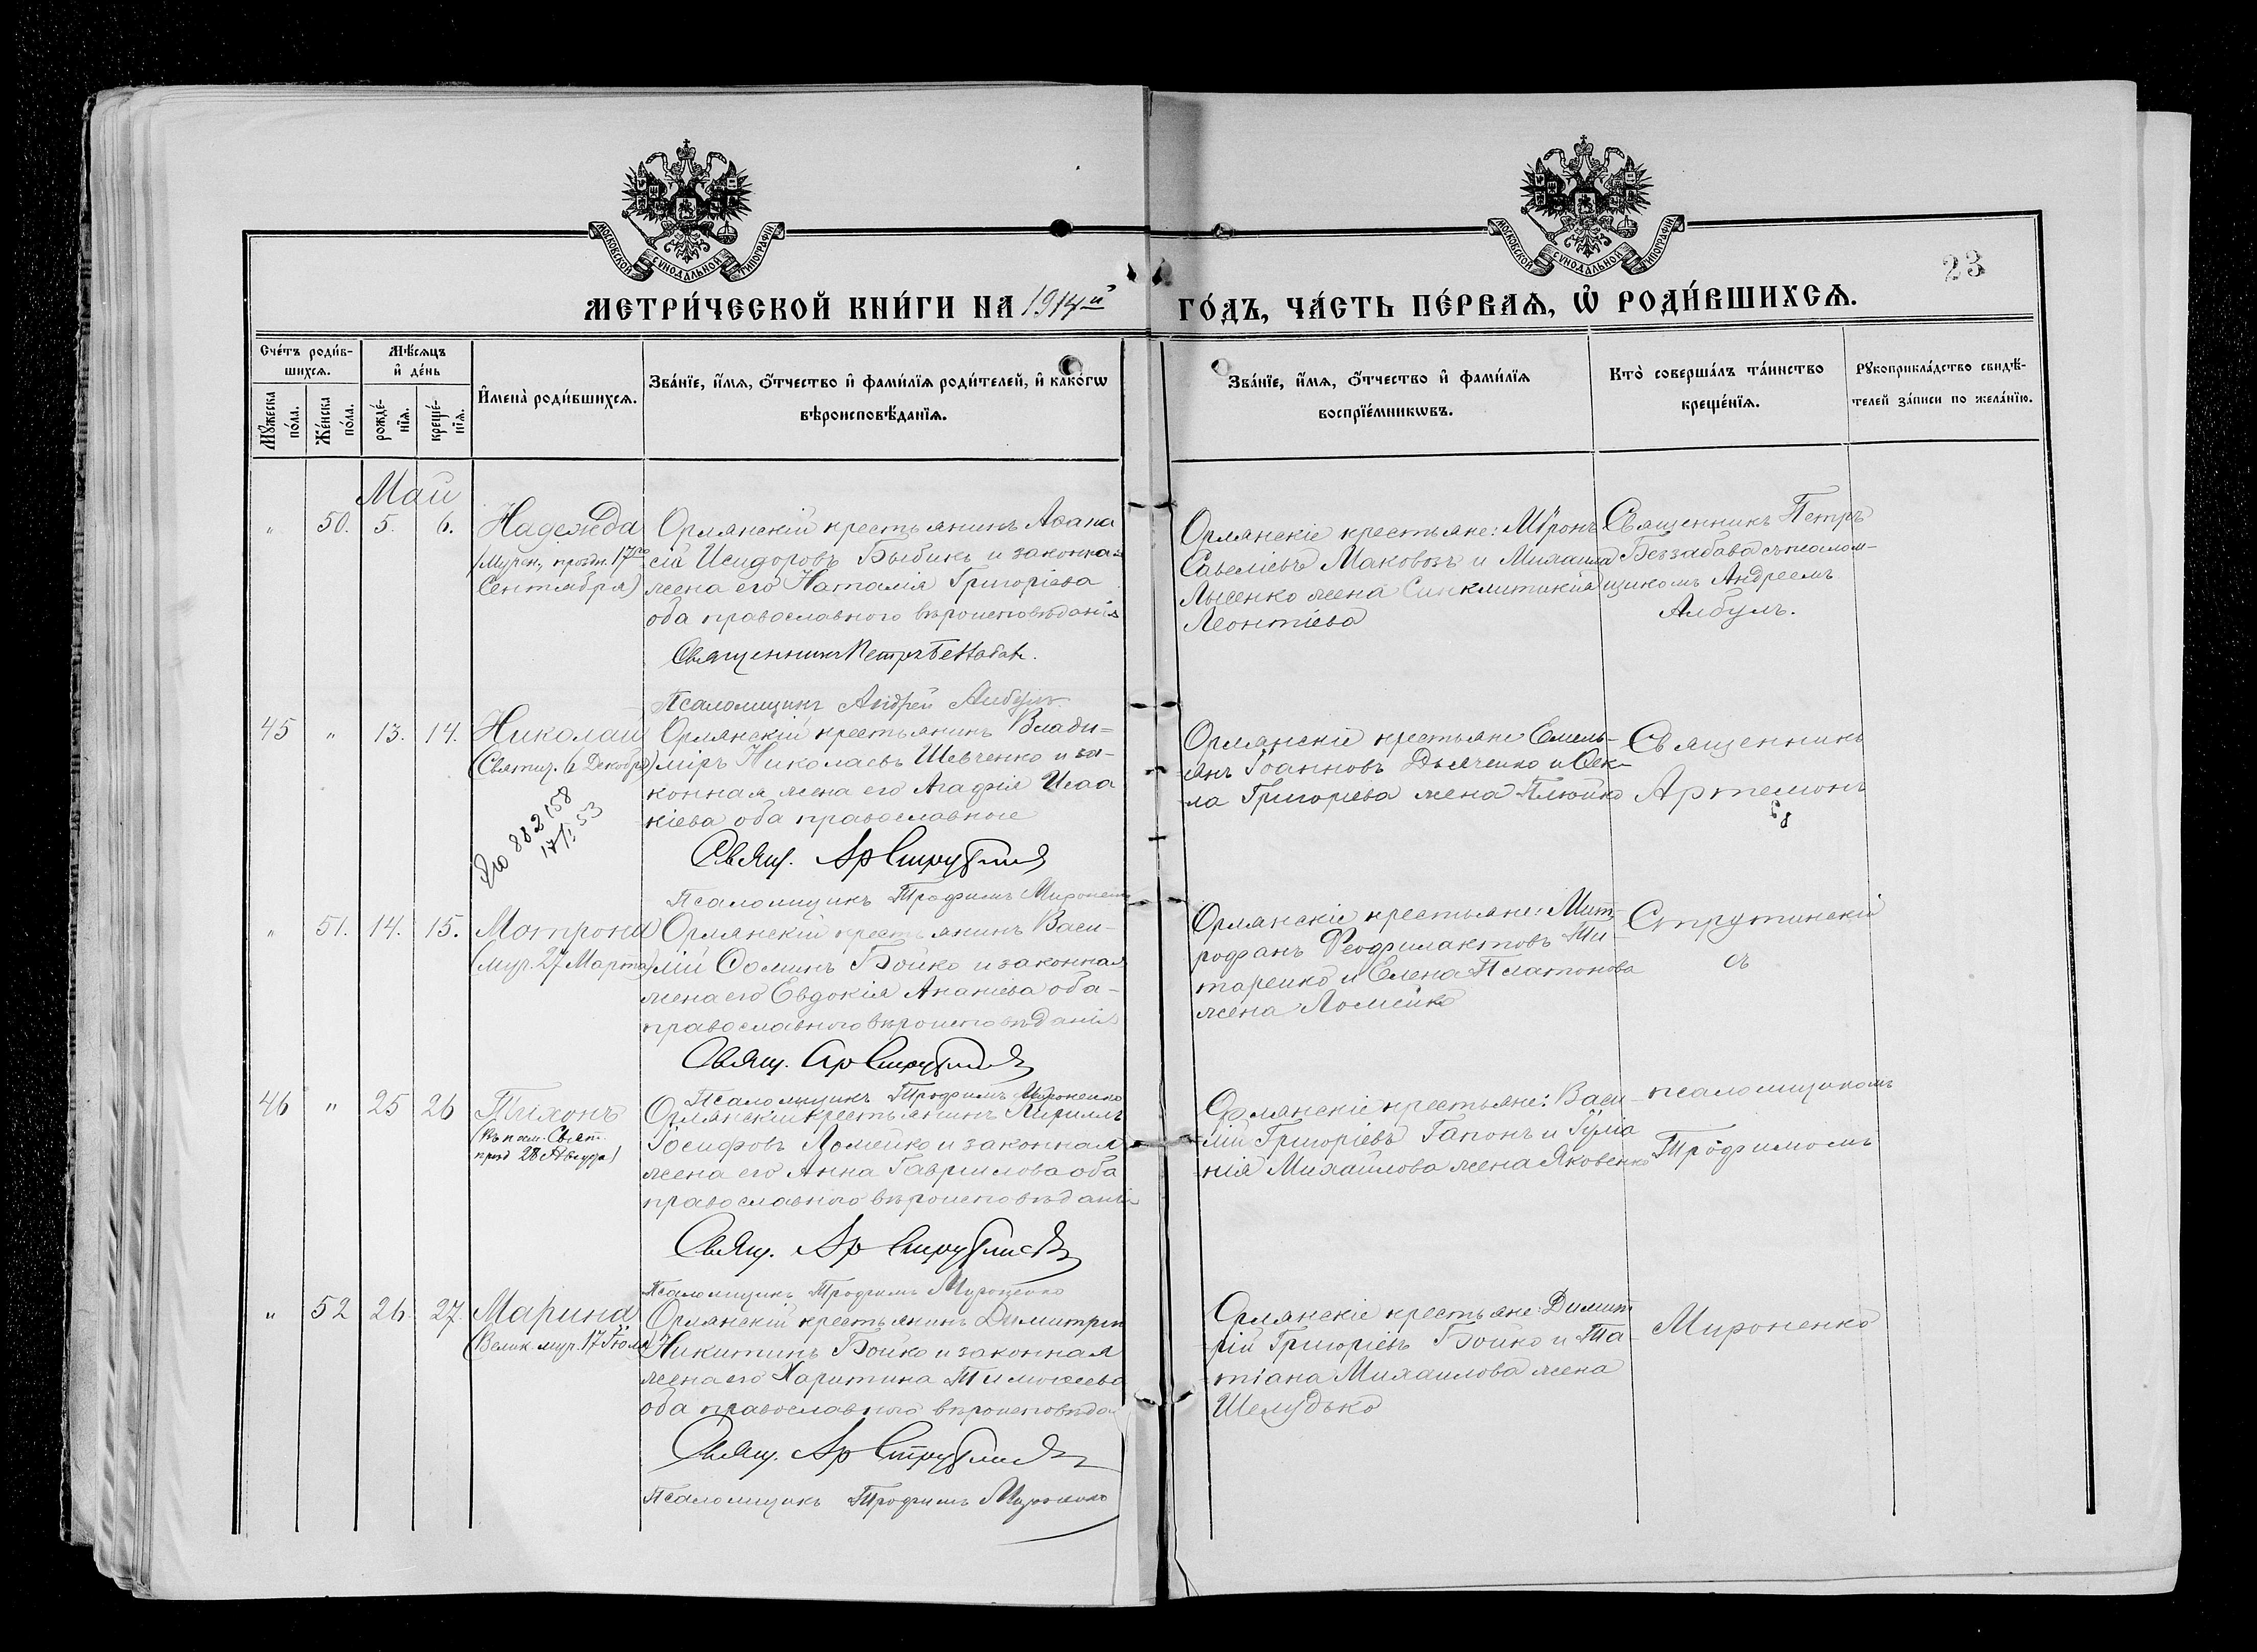 МОСКОВСКОЙ СѴНОДАЛЬНОЙ ТИПОГРАФІИ
МОСКОВСКОЙ СѴНОДАЛЬНОЙ ТИПОГРАФІИ
23
МЕТРИ́ЧЕСКОЙ КНИ́ГИ НА 1914й ГО́ДЪ, ЧА́СТЬ ПЕ́РВАѦ, Ѡ҆ РОДИ́ВШИХСѦ.
Сче́тъ роди́в-
шихсѧ.
Мꙋ́жеска по́ла.
Же́нска по́ла.
Мѣ́сѧцъ
и҆ де́нь
рожде́-
нїѧ.
креще́-
нїѧ.
И҆мена̀ роди́вшихсѧ.
Зва́нїе, и҆́мѧ, ѻ҆́тчество и҆ фами́лїѧ роди́телей, и҆ како́гѡ
вѣроисповѣ́данїѧ.
Зва́нїе, и҆́мѧ, ѻ҆́тчество и҆ фами́лїѧ
воспрїе́мникѡвъ.
Кто̀ соверша́лъ та́инство
креще́нїѧ.
Рꙋкоприкла́дство свидѣ́-
телей за́писи по жела́нїю.
Май
" 50. 5. 6. Надежда
(Мучен., празд. 17го
Сентября)
Орлянскій крестьянинъ Аѳана
сій Исидоровъ Быбикъ и законная
жена его Наталія Григоріева
оба православнаго вѣроисповѣданія
Священникъ Петръ Беззабава.
Псаломщикъ Андрей Албулъ
Орлянскіе крестьяне: Мѵронъ
Савеліевъ Маковозъ и Михаила
Лысенко жена Синклитикія
Леонтіева
Священникъ Петръ
Беззабава съ псалом-
щикомъ Андреемъ
Албулъ.
45 " 13. 14. Николай
(Святит. 6 Декабря)
882158
17/I 53
Орлянскій крестьянинъ Влади=
міръ Николаевъ Шевченко и за-
конная жена его Агафія Исаа
кіева оба православные
Свящ. Ар Струтинскій
Псаломщикъ Трофимъ Мироненко
Орлянскіе крестьяне Емель-
янъ Іоанновъ Дьяченко и Ѳек-
ла Григорьева жена Плюйко
Священникъ
Артемонъ
" 51. 14. 15. Матрона
(муч. 27 Марта)
Орлянскій крестьянинъ Васи-
лій Ѳоминъ Бойко и законная
жена его Евдокія Ананіева оба-
православнаго вѣроисповѣданія
Свящ. Ар Струтинскій
Псаломщикъ Трофимъ Мироненко
Орлянскіе крестьяне: Мит-
рофанъ Ѳеофилактовъ Ти-
таренко и Елена Платонова
жена Ломейко
Струтинскій
съ
46 " 25 26 Тихонъ
(въ пам. Свят.
празд 28 Августа)
Орлянскій крестьянинъ Кириллъ
Іосифовъ Ломейко и законная
жена его Анна Гавриилова оба
православнаго вѣроисповѣданія
Свящ. Ар Струтинскій
Псаломщикъ Трофимъ Мироненко
Орлянскіе крестьяне: Васи-
лій Григоріевъ Гапонъ и Іуліа
нія Михайлова жена Яковенко
псаломщикомъ
Трофимомъ
" 52 26. 27. Марина
(Велик. муч. 17 Іюля)
Орлянскій крестьянинъ Димитрій
Никитинъ Бойко и законная
жена его Харитина Тимоѳеева
оба православнаго вѣроисповѣда
Свящ. Ар Струтинскій
Псаломщикъ Трофимъ Мироненко
Орлянскіе крестьяне: Димит
рій Григоріевъ Бойко и Та-
тіана Михаилова жена
Шелудько
Мироненко